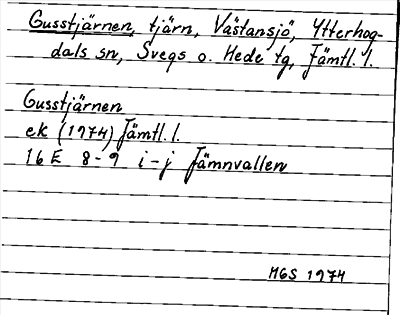 Gusstjärnen, tjärn, Västansjö, Ytterhog-
dals sn, Svegs o. Hede tg, Jämtl. l.
Gusstjärnen
ek (1974) Jämtl. l.
16 E 8-9 i-j Jämnvallen
MGS 1974